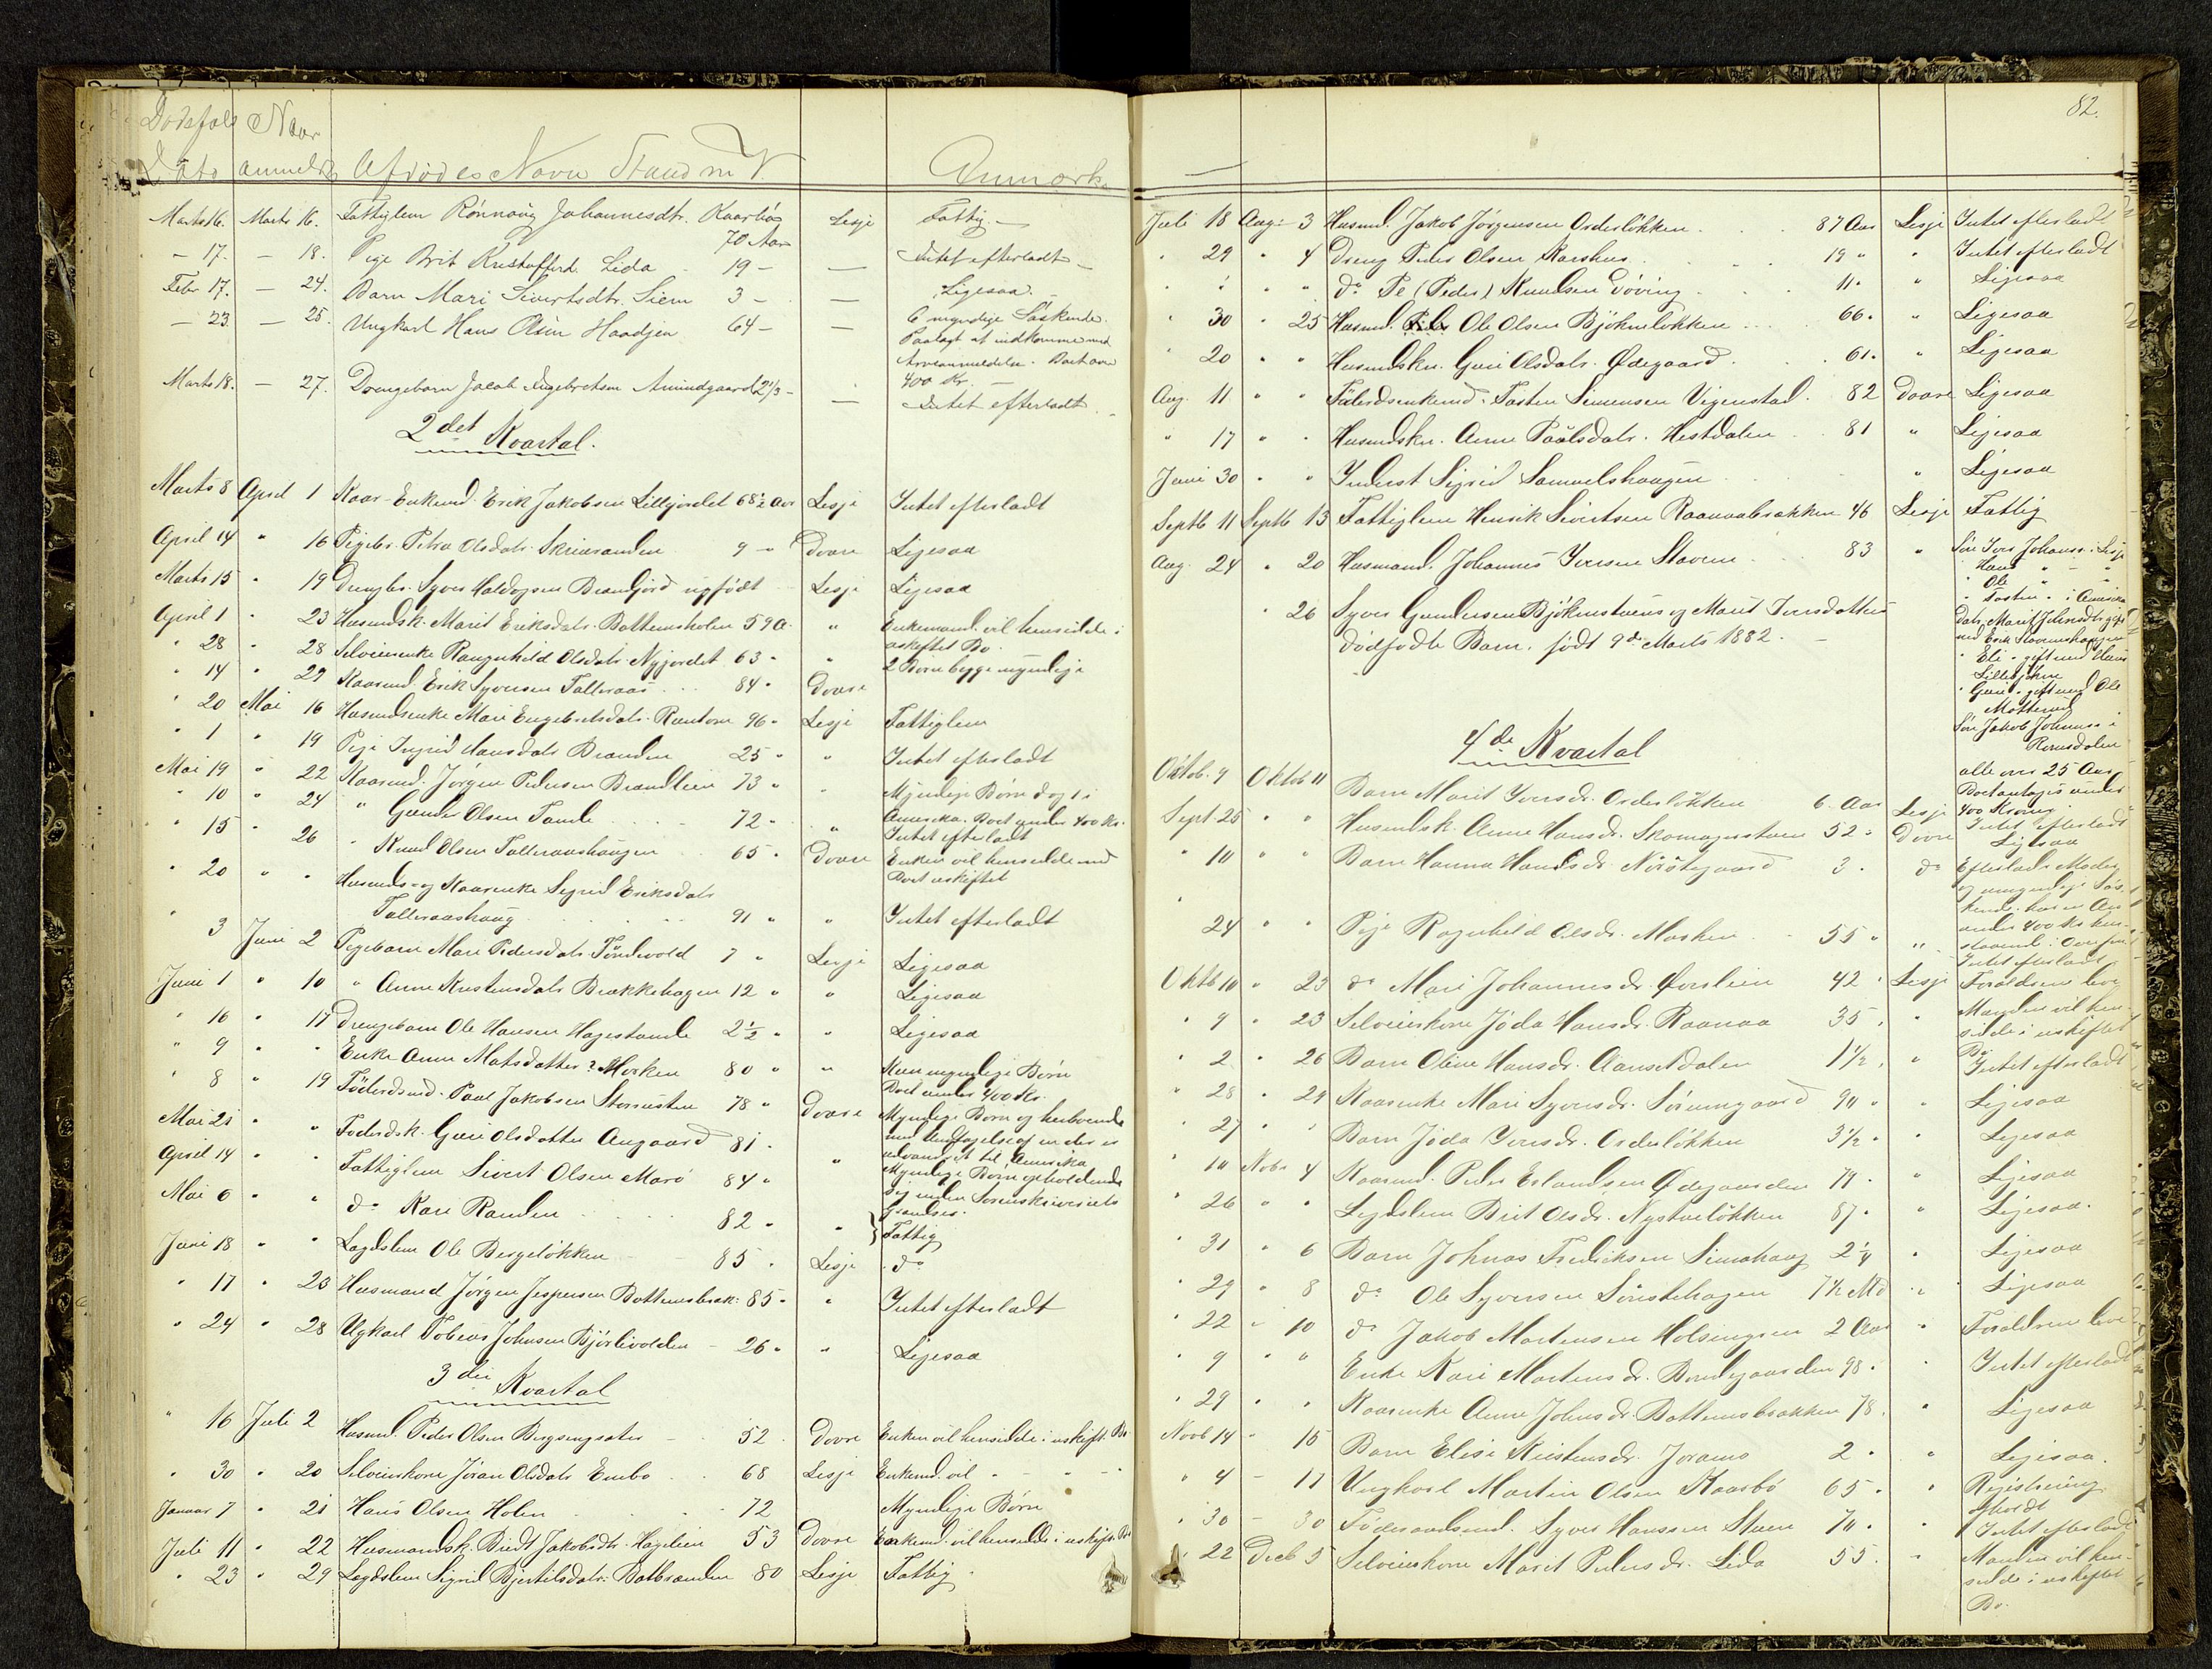 Dødsfald Naar
Dato anmeldt Afdødes Navn Stand m V. Anmærkn
Marts 16. Marts 16. Fattiglem Rönnaug Johannesdtr. Kaarbös 70 Aar Lesje Fattig.
- 17. - 18. Pige Brit Kristoffersd. Lida 19 - — Intet efterladt
Febr 17. - 24. Barn Mari Sivertsdtr. Siem 3 - — Ligesaa.
- 23. - 25. Ungkarl Hans Olsen Haadjen 64 - — 6 myndige Söskende.
Paalagt at indkomme med
Arveanmeldelse. Boet over
400 Kr.
Marts 18. - 27. Drengebarn Jacob Engebretsen Amundgaard 2 1/3 - — Intet efterladt
2det Kvartal.
Marts 8 April 1 Kaar-Enkemd. Erik Jakobsen Lillejordet 68 1/2 Aar Lesje Intet efterladt
April 14 " 16 Pigebr. Petra Olsdatr. Skriuranden 9 - " Dovre Ligesaa
Marts 15 " 19 Drengbr. Syver Haldogsen Brandjord nyfödt Lesje Ligesaa
April 1 " 23 Husmdsk. Marit Eriksdatr. Bottemsholen 59 A. " Enkemand. vil hensidde i
uskiftet Bo.
" 28 " 28 Selveierenke Rangnhild Olsdatr. Nyjordet 63 " " 2 Børn begge myndige
" 14 " 29 Kaarmd. Erik Syversen Talleraas 84 " Dovre
" 20 Mai 16 Husmdsenke Mari Engebretsdatr. Rundtom 96 " Lesje Fattiglem
" 1 " 19 Pige Ingrid Hansdatr Branden 25 " " Intet efterladt
Mai 19 " 22 Kaarmd. Jörgen Pedersen Brandlien 73 " " Myndige Børn dog 1 i
" 10 " 24 " Gunder Olsen Tande 72 " " Amerika. Boet under 400 Kr.
Intet efterladt
" 15 " 26 " Knud Olsen Talleraashaugen 65 " Dovre Enken vil hensidde med
Boet uskiftet
" 20 " " Husmds- og Kaarenke Sigrid Eriksdatr
Talleraashaug 91 " " Intet efterladt
" 3 Juni 2 Pigebarn Mari Pedersdatr Töndevold 7 " Lesje Ligesaa
Juni 1 " 10 " Anne Kristensdatr Brækkehagen 12 " " Ligesaa
" 16 " 17 Drengebarn Ole Hansen Hagestande 2 1/2 " " Ligesaa
" 9 " " Enke Anne Matsdatter? Morken 80 " " Kun myndige Børn
Boet under 400 Kr.
" 8 " 19 Föderdsmd. Paal Jakobsen Storrusten 78 " Dovre Myndige Børn og herboende
med Undtagelse af en der er
udvandret til Amerika
Mai 21 " " Foderdsk. Guri Olsdatter Angaard 81 " " Myndige Børn opholdende
sig inden Sorenskriveriets
Grændser.
April 14 " " Fattiglem Sivert Olsen Marö 84 "
Mai 6 " " do Kari Randen 82 " " } Fattig
Juni 18 " " Lægdslem Ole Bergeløkken 85 " Lesje do
" 17 " 23 Husmand Jörgen Jespersen Bottemsbræk: 85 " " Intet efterladt
" 24 " 28 Ugkarl Tobias Johnsen Bjørlivolden 26 " " Ligesaa
3die Kvartal
" 16 Juli 2 Husmd. Peder Olsen Bergsengsater 52 Dovre Enken vil hensidde i uskift. Bo
" 30 " 20 Selveierkone Jöran Olsdatr Enbo 68 Lesje Enkemd. vil " - " - "
Januar 7 " 21 Hans Olsen Holen 72 Myndige Børn
Juli 11 " 22 Husmandsk. Birit Jakobsdtr. Hagelien 53 Dovre Enkemd. vil hensidde i uskift. Bo
" 23 " 29 Lægdslem Sigrid Bjertilsdatr. Botbranden 80 Lesje Fattig
82.
Juli 18 Aug. 3 Husmd. Jakob Jörgensen Orderløkken 87 Aar Lesje Intet efterladt
" 29 " 4 Dreng Peder Olsen Karshus 19 " " Intet efterladt
" " " " do Pe (Peder) Knudsen Döving 11 " " Ligesaa
" 30 " 25 Husmd. Ole Olsen Bjöknelökken 66 " " Ligesaa
" 20 " " Husmdskn. Guri Olsdatr. Ødegaard 61 " " Ligesaa
Aug. 11 " " Föderdsenkemd. Tosten Simensen Vigerstad 82 Dovre Ligesaa
" 17 " " Husmdskn. Anne Paalsdatr. Hestdalen 81 " Ligesaa
Juni 30 " " Inderst Sigrid Samuelshaugen " Ligesaa
Septb 11 Septb 13 Fattiglem Henrik Sivertsen Raanaabrækken 46 Lesje Fattig
Aug. 24 " 20 Husmand. Johannes Iversen Staven 83 " Sön Iver Johanss. i Lesje
" Hans " - "
" Ole " "
" Tosten " i Amerika
" 26 Syver Gundersen Bjöknestuens og Marit Iversdatters
dödfödte Barn, födt 9de Marts 1882.
Datr. Marit Johnsdtr gift
med Erik
" Eli " gift med Hans
" Guri " gift med Ole
Sön Jakob Johanss i
Romsdalen
alle over 25 Aar
Boet antages under
400 Kroner
4de Kvartal
Oktob. 9 Oktob 11 Barn Marit Iversdr. Orderlökken 6 Aar Lesje Intet efterladt
Sept 25 " " Husmdsk. Anne Hansdr. Skomagerstuen 52 " Dovre Ligesaa
" 10 " " Barn Hanna Hansdr. Nörstegaard 3 " do Efterlader Moder
og umyndige Sös-
kende.
24 " " Pige Ragnhild Olsdr. Morken 55 " " Intet efterladt
Oktb 10 " 23 do Mari Johannesdr. Øvrlien 42 " Lesje Forældrene leve
" 9 " 23 Selveierkone Jöda Hansdr. Raanaa 35 " " Manden vil hen-
sidde i uskiftet
Bo.
" 2 " 26 Barn Oline Hansdr. Aansetdalen 1 1/2 " " Intet efterladt
" 28 " 29 Kaarenke Mari Syversdr. Sörumgaard 90 " " Ligesaa
" 27 " " Barn Jöda Iversdr. Orderlökken 3 1/2 " " Ligesaa
" 10 Nobr 4 Kaarmd. Peder Erlandsen Ødegaarden 79 " " Ligesaa
" 26 " " Legdslem Brit Olsdr. Nystuelökken 87 " " Ligesaa.
" 31 " 6 Barn Johnas Fredriksen Simahaug 2 1/4 " Ligesaa
" 29 " 8 do Ole Syversen Sörstehagen 7 1/2 Md " Ligesaa
" 22 " 10 do Jakob Mortensen Holsingsen 2 Aar " Forældrene leve
" 9 " " Enke Kari Mortensdr. Bondegaarden 98 " " Intet efterladt
" 29 " " Kaarenke Anne Johnsdr. Bottemsbrækken 78 " " Ligesaa
Novb 14 " 15 Barn Elise Kristensdr. Joramo 2 " " Ligesaa.
" 4 - 17 Ungkarl Martin Olsen Kaarbö 65 " " Registrering
afholdt
" 30 - 30 Föderaadsmd. Syver Hanssen Stuen 70 " " Intet efterladt
" 22 Decb 5 Selveierkone Marit Pedersdr. Lida 55 " " Manden vil hen-
sidde i uskiftet
Bo.